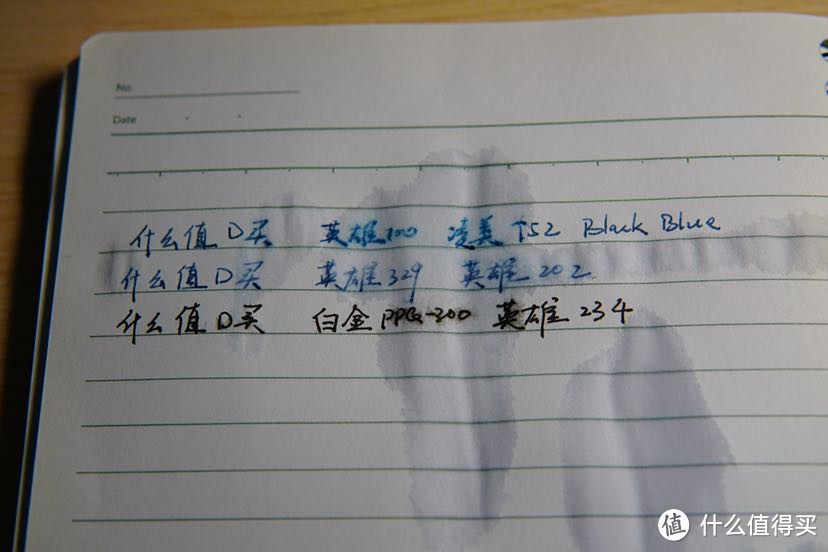 No.
Date
什么值D买 英雄100 凌美 T52 Black Blue
什么值D买 英雄329 英雄202
什么值D买 白金PPQ-200 英雄234
值 什么值得买